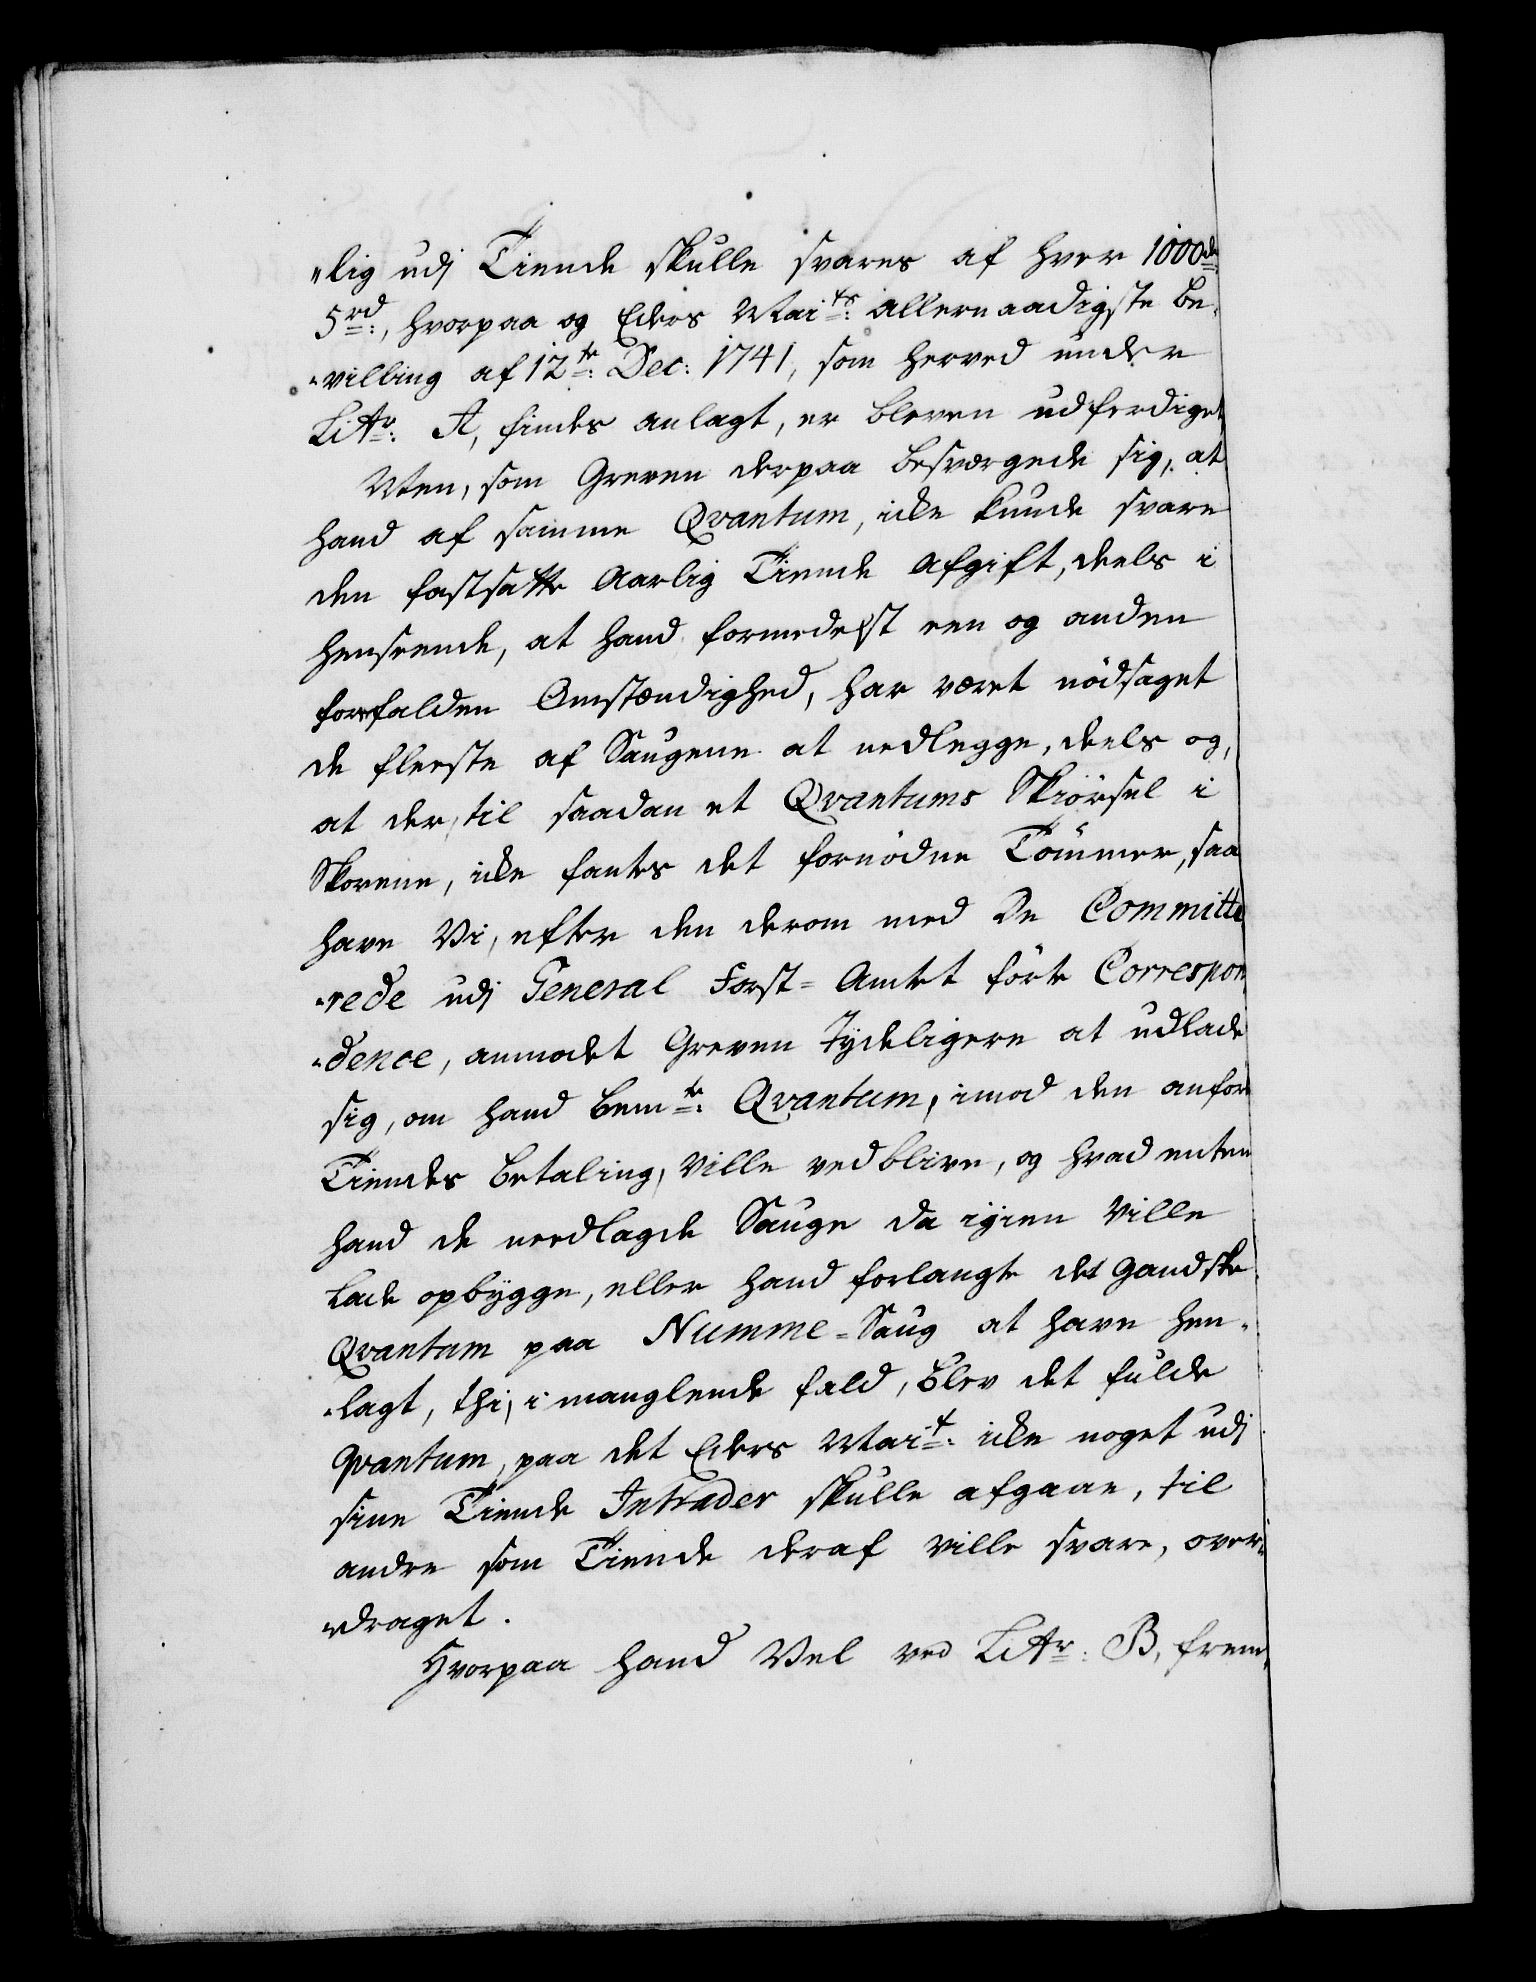 "lig udj Tiende skulle svares af hver 1000de
5rd:, hvorpaa og Eders Maits: allernaadigste Be-
-villing af 12te: Dec: 1741, som herved under
Littr: A, findes anlagt, er bleven udferdiget,
Men, som Greven derpaa besværgede sig, at
hand af samme Qvantum, icke kunde svare
den fastsatte Aarlig Tiende Afgift, deels i
henseende, at hand formedelst een og anden
forefalden Omstændighed, har været nödsaget
de fleeste af Saugene at nedlegge, deels og,
at der, til saadan et Qvantums Skiörsel i
Skovene, icke fantes det fornödne Tömmer, saa
have Vi, efter den derom med De Committe
-rede udj General Forst-Amtet förte Correspon
-dence, anmodet Greven Tydeligere at udlade
sig, om hand bemte: Qvantum, imod den anför
Tiendes betaling, Ville vedblive, og hvad enten
hand de needlagde Sauge da igien Ville
Lade opbygge, eller hand forlangte det gandske
Qvantum paa Numme-Saug at have hen-
-lagt, thi, i manglende fald, blev det fulde
Qvantum, paa det Eders Mait: icke noget udj
sine Tiende Intrader skulle afgaae, til
andre som Tiende deraf ville svare, over-
-draget.
Hvorpaa hand Vel ved Littr: B, frem-